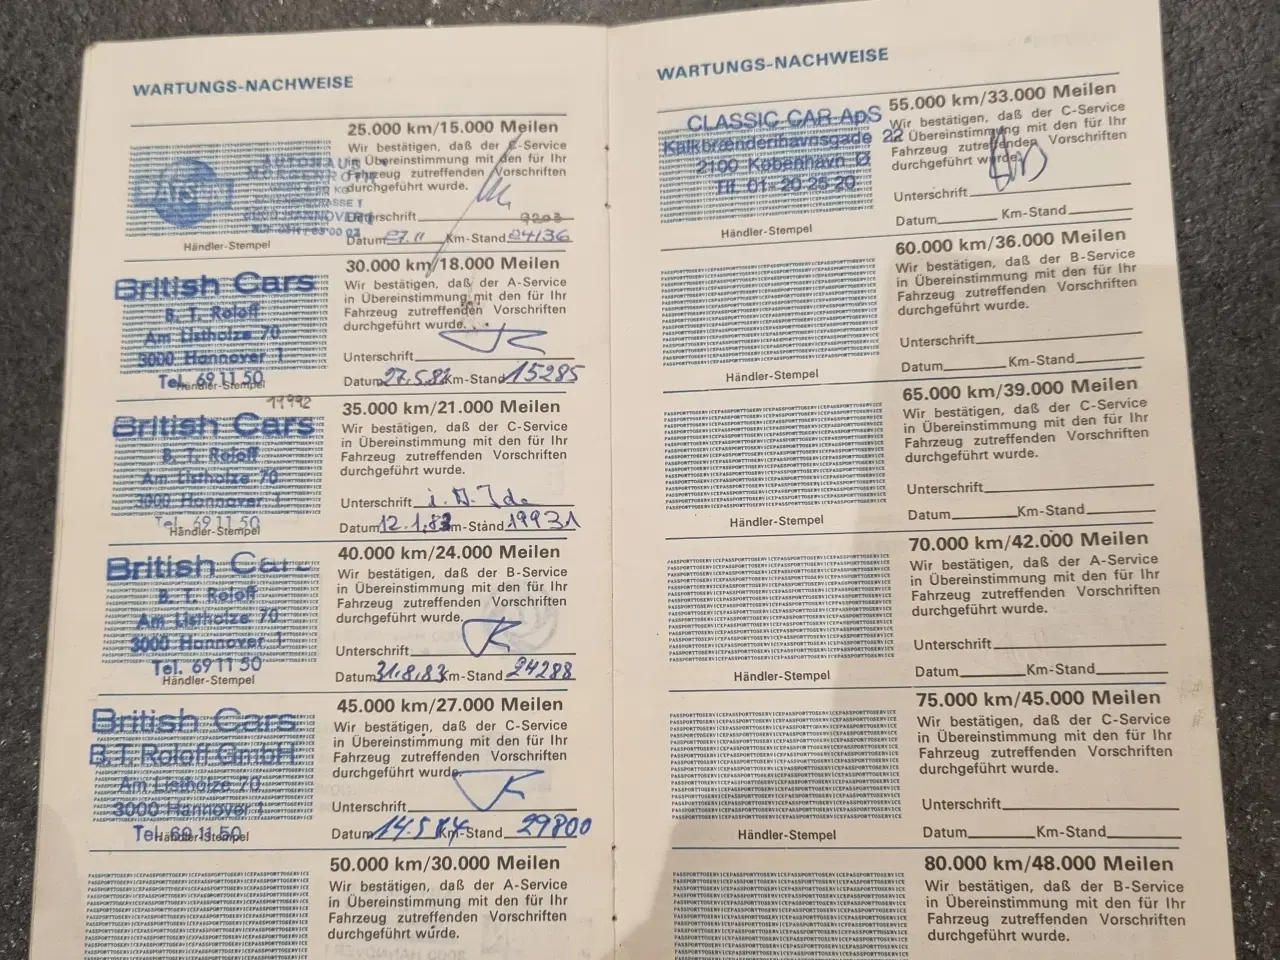 WARTUNGS-NACHWEISE
25.000 km/15.000 Meilen
Wir bestätigen, daß der C-Service
in Übereinstimmung mit den für Ihr
Fahrzeug zutreffenden Vorschriften
durchgeführt wurde.
Unterschrift
9203
Datum 27.11 Km-Stand 04136
Händler-Stempel
British Cars
B. T. Roloff
Am Listholze 70
3000 Hannover 1
Tel. 69 11 50
Händler-Stempel
30.000 km/18.000 Meilen
Wir bestätigen, daß der A-Service
in Übereinstimmung mit den für Ihr
Fahrzeug zutreffenden Vorschriften
durchgeführt wurde.
Unterschrift
Datum 27.5.82 Km-Stand 15285
19992
British Cars
B. T. Roloff
Am Listholze 70
3000 Hannover 1
Tel. 69 11 50
Händler-Stempel
35.000 km/21.000 Meilen
Wir bestätigen, daß der C-Service
in Übereinstimmung mit den für Ihr
Fahrzeug zutreffenden Vorschriften
durchgeführt wurde.
Unterschrift
Datum 12.1.83 Km-Stand 19931
British Cars
B. T. Roloff
Am Listholze 70
3000 Hannover 1
Tel. 69 11 50
Händler-Stempel
40.000 km/24.000 Meilen
Wir bestätigen, daß der B-Service
in Übereinstimmung mit den für Ihr
Fahrzeug zutreffenden Vorschriften
durchgeführt wurde.
Unterschrift
Datum 31.8.83 Km-Stand 24288
British Cars
B. T. Roloff GmbH
Am Listholze 70
3000 Hannover 1
Tel. 69 11 50
Händler-Stempel
45.000 km/27.000 Meilen
Wir bestätigen, daß der C-Service
in Übereinstimmung mit den für Ihr
Fahrzeug zutreffenden Vorschriften
durchgeführt wurde.
Unterschrift
Datum 14.5.84 Km-Stand 29800
50.000 km/30.000 Meilen
Wir bestätigen, daß der A-Service
in Übereinstimmung mit den für Ihr
Fahrzeug zutreffenden Vorschriften
durchgeführt wurde.
WARTUNGS-NACHWEISE
CLASSIC CAR ApS
Kalkbrænderihavnsgade 22
2100 København Ø
Tlf. 01 - 20 25 20
Händler-Stempel
55.000 km/33.000 Meilen
Wir bestätigen, daß der C-Service
in Übereinstimmung mit den für Ihr
Fahrzeug zutreffenden Vorschriften
durchgeführt wurde.
Unterschrift
Datum Km-Stand
60.000 km/36.000 Meilen
Wir bestätigen, daß der B-Service
in Übereinstimmung mit den für Ihr
Fahrzeug zutreffenden Vorschriften
durchgeführt wurde.
Unterschrift
Datum Km-Stand
Händler-Stempel
65.000 km/39.000 Meilen
Wir bestätigen, daß der C-Service
in Übereinstimmung mit den für Ihr
Fahrzeug zutreffenden Vorschriften
durchgeführt wurde.
Unterschrift
Datum Km-Stand
Händler-Stempel
70.000 km/42.000 Meilen
Wir bestätigen, daß der A-Service
in Übereinstimmung mit den für Ihr
Fahrzeug zutreffenden Vorschriften
durchgeführt wurde.
Unterschrift
Datum Km-Stand
Händler-Stempel
75.000 km/45.000 Meilen
Wir bestätigen, daß der C-Service
in Übereinstimmung mit den für Ihr
Fahrzeug zutreffenden Vorschriften
durchgeführt wurde.
Unterschrift
Datum Km-Stand
Händler-Stempel
80.000 km/48.000 Meilen
Wir bestätigen, daß der B-Service
in Übereinstimmung mit den für Ihr
Fahrzeug zutreffenden Vorschriften
durchgeführt wurde.